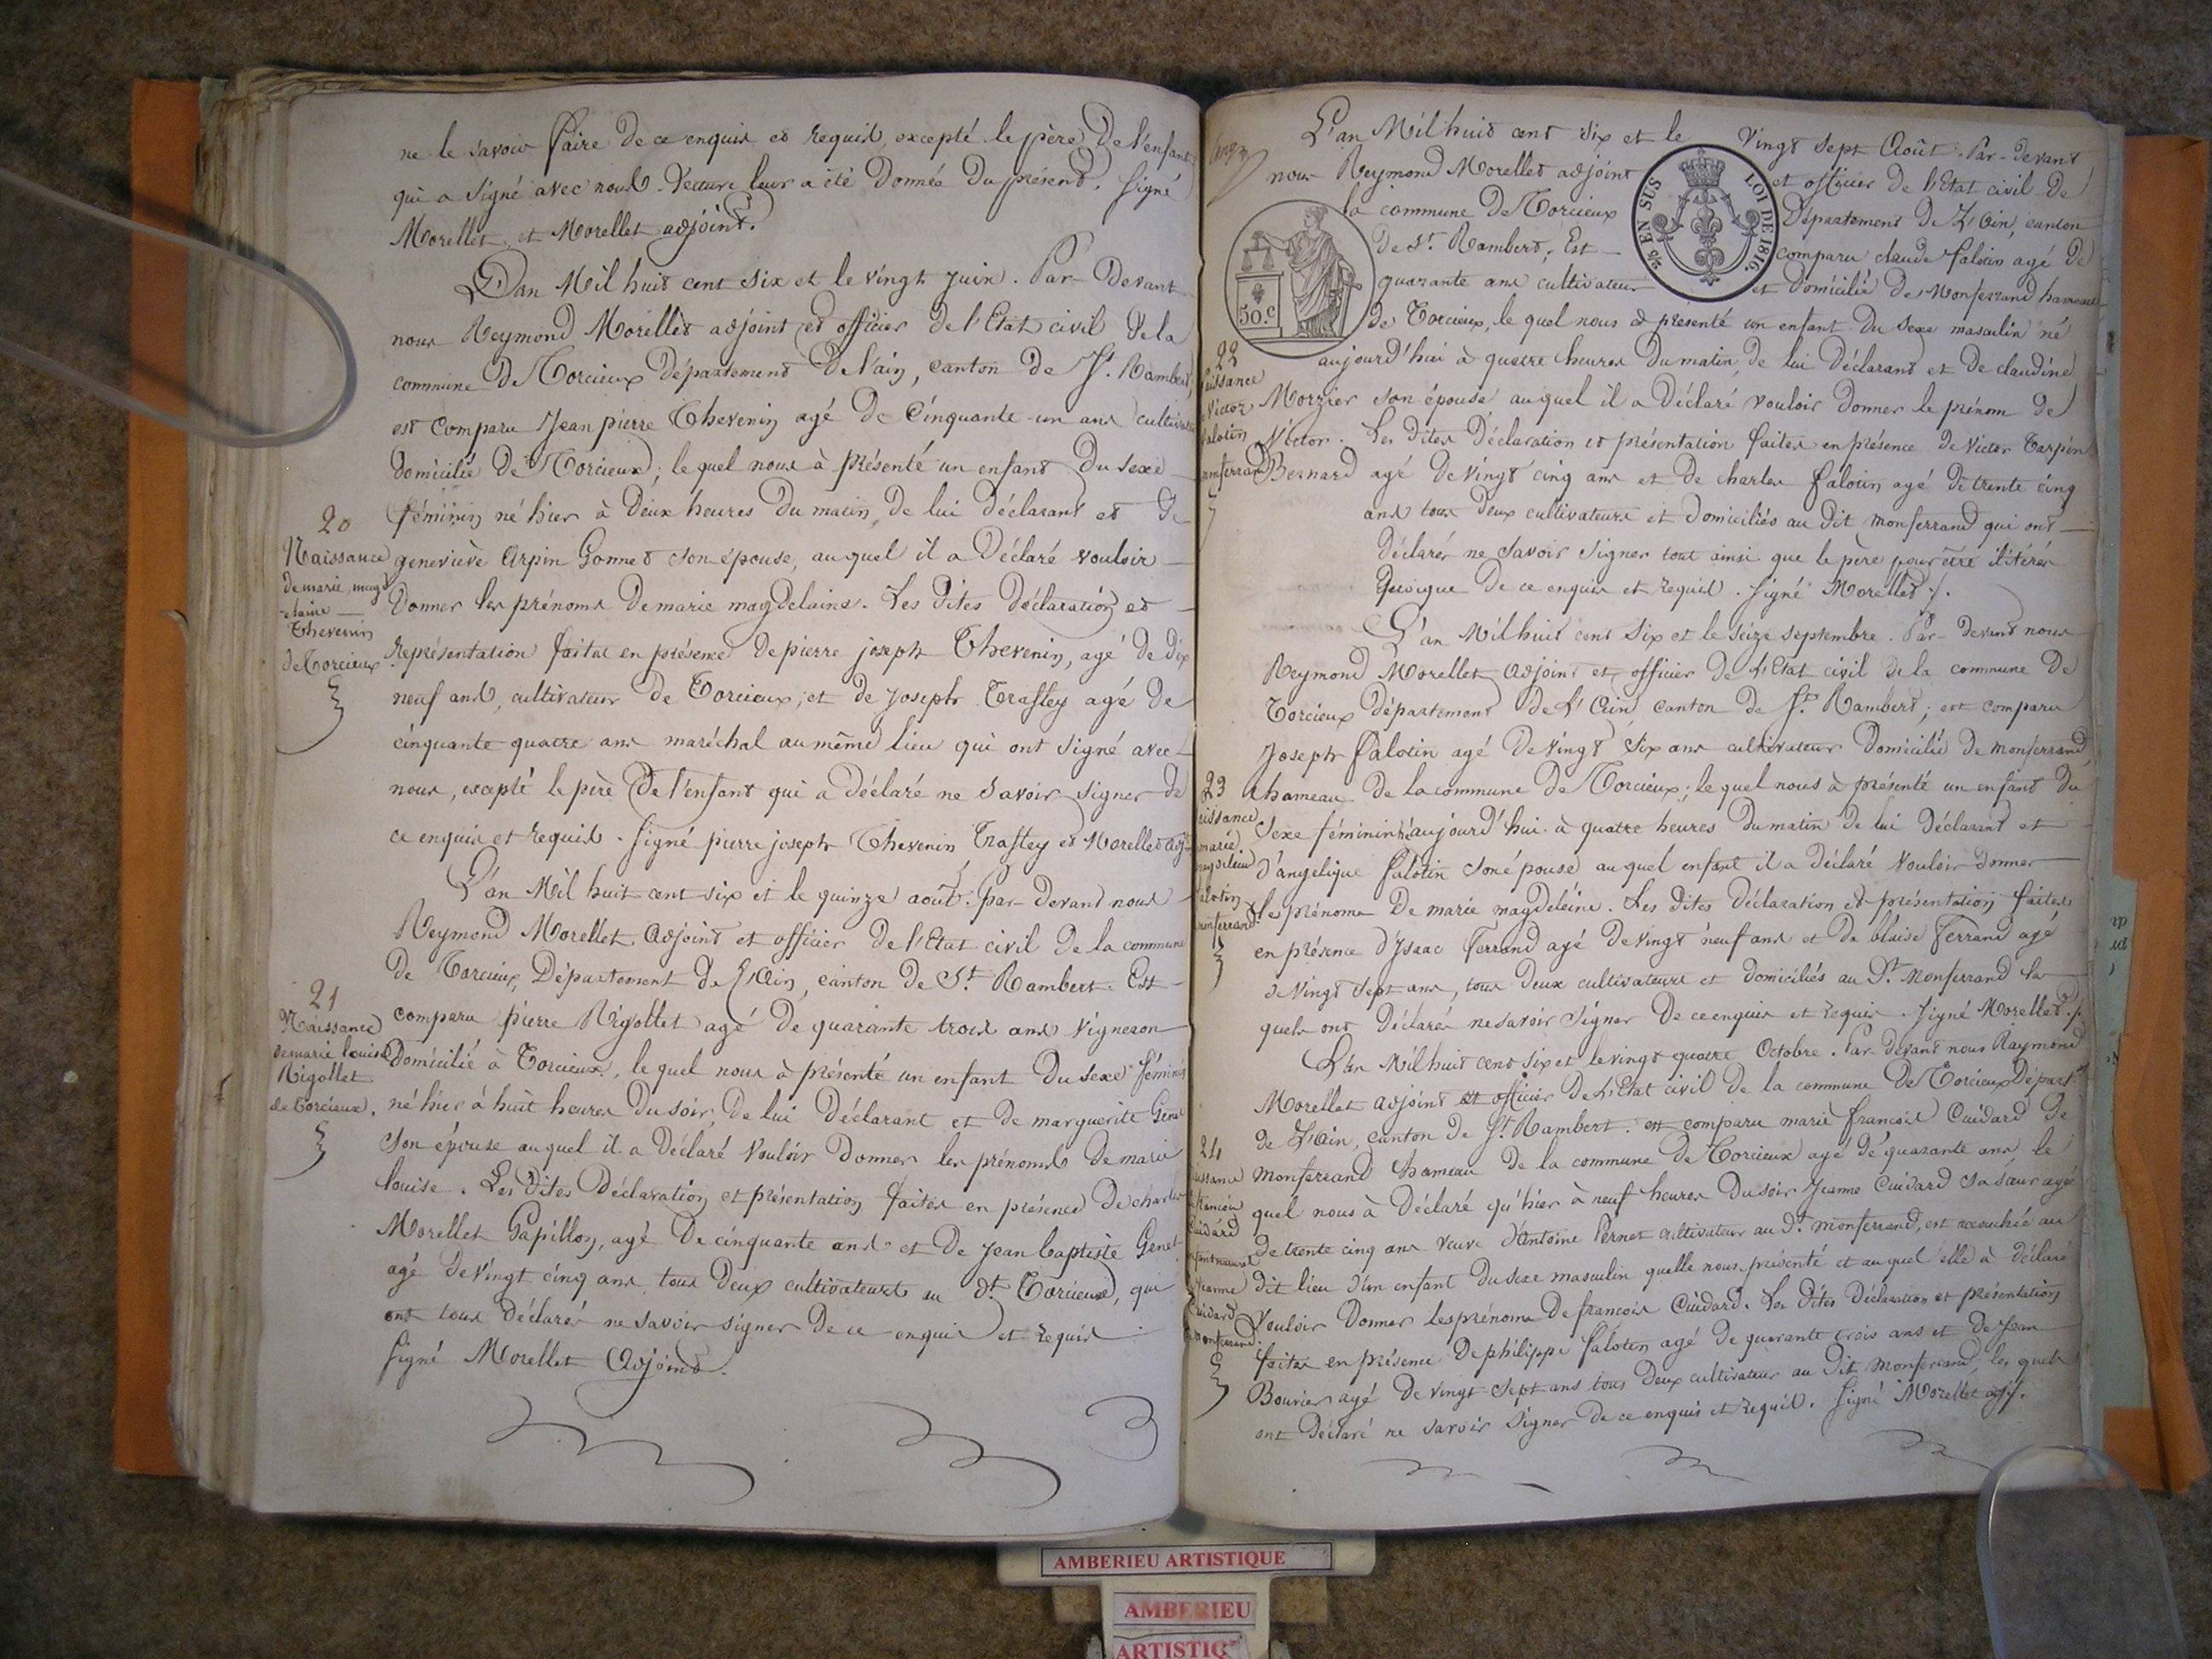 ne le savoir faire de ce enquis et requis, excepté le père de l'enfant
qui a signé avec nous. Lecture leur a été donnée du présent. Signé
Morellet et Morellet adjoint.
L'an Mil huit cent six et le vingt juin. Par-devant
nous Reymond Morellet adjoint et officier de l'Etat civil de la
commune de Torcieux département de l'ain, canton de St. Rambert,
est comparu Jean pierre Thevenin agé de cinquante-un ans cultivateur
domicilié de Torcieux; le quel nous à présenté un enfant du sexe
20
féminin né hier à deux heures du matin, de lui déclarant et de
Naissance
de marie mag
-elaine
Thevenin
de Torcieux
geneviève Arpin Gonnet son épouse, auquel il a déclaré vouloir
donner les prénoms de marie magdelaine. Les dites déclaration et
représentation faites en présence de pierre joseph Thevenin, agé de dix
neuf ans, cultivateur de Torcieux; et de Joseph Trafley agé de
cinquante quatre ans maréchal au même lieu qui ont signé avec
nous, excepté le père de l'enfant qui a déclaré ne savoir signer de
ce enquis et requis. Signé pierre joseph Thevenin Trafley et Morellet adj
L'an Mil huit cent six et le quinze août. Par-devant nous
Reymond Morellet adjoint et officier de l'Etat civil de la commune
de Torcieux, Département de L'Ain, canton de St. Rambert. Est
21
Naissance
de marie louise
Rigollet
de torcieux.
comparu pierre Rigollet agé de quarante trois ans vigneron
domicilié à Torcieux, le quel nous à présenté un enfant du sexe féminin
né hier à huit heures du soir, de lui déclarant et de marguerite Genet
son épouse auquel il a déclaré vouloir donner les prénoms de marie
louise. Les dites déclaration et présentation faites en présence de charles
Morellet Papillon, agé de cinquante ans et de Jean baptiste Genet
agé de vingt cinq ans tous deux cultivateurs au dt. Torcieux, qui
ont tous déclarés ne savoir signer de ce enquis et requis
Signé Morellet adjoint.
L'an Mil huit cent six et le vingt sept Août. Par-devant
nous Reymond Morellet adjoint et officier de l'Etat civil de
la commune de Torcieux Département de L'Ain, canton
de St. Rambert, Est comparu claude falotin agé de
quarante ans cultivateur et domicilié de Monferrand hameau
de Torcieux, le quel nous à présenté un enfant du sexe masculin né
2/5 EN SUS LOI DE 1816.
50.c
22
aissance
Victor
falotin
monferrand
aujourd'hui à quatre heures du matin, de lui déclarant et de claudine
Morzier son épouse auquel il a déclaré vouloir donner le prénom de
Victor. Les dites déclaration et présentation faites en présence de Victor Tarpin
Bernard agé de vingt cinq ans et de charles falotin agé de trente cinq
ans tous deux cultivateurs et domiciliés au dit monferrand qui ont
déclarés ne savoir signer tout ainsi que le père pour être ilitérés
quoique de ce enquis et requis. Signé Morellet ./.
L'an Mil huit cent six et le seize septembre. Par-devant nous
Reymond Morellet adjoint et officier de l'Etat civil de la commune de
Torcieux département de L'Ain canton de St. Rambert; est comparu
Joseph falotin agé de vingt six ans cultivateur domicilié de monferrand,
23
issance
marie
magdeleine
falotin
monferrand
hameau de la commune de Torcieux; le quel nous à présenté un enfant du
sexe féminin né aujourd'hui à quatre heures du matin de lui déclarant et
d'angelique falotin son épouse auquel enfant il a déclaré vouloir donner
les prénoms de marie magdeleine. Les dites déclaration et présentation faites
en présence d'Isaac Ferrand agé de vingt neuf ans et de blaise Ferrand agé
de vingt sept ans, tous deux cultivateurs et domiciliés au dt. monferrand les
quels ont déclarés ne savoir signer de ce enquis et requis. Signé Morellet ./.
L'an Mil huit cent six et le vingt quatre Octobre. Par-devant nous Raymond
Morellet adjoint et officier de l'Etat civil de la commune de Torcieux Départt
de L'Ain, canton de St. Rambert. est comparu marie françois Cuidard de
24
issance
françois
Cuidard
naturel
Jeanne
Cuidard
monferrand.
monferrand hameau de la commune de Torcieux agé de quarante ans, le
quel nous à déclaré qu'hier à neuf heures du soir Jeanne Cuidard sa sœur agée
de trente cinq ans veuve d'Antoine Pernet cultivateur au dt. monferrand, est accouchée au
dit lieu d'un enfant du sexe masculin quelle nous présenté et auquel elle à déclaré
vouloir donner les prénoms de françois Cuidard. Les dites déclaration et présentation
faites en présence de philippe falotin agé de quarante trois ans et de Jean
Bouvier agé de vingt-sept ans tous deux cultivateur au dit monferrand, les quels
ont déclaré ne savoir signer de ce enquis et requis. Signé Morellet adjt.
AMBERIEU ARTISTIQUE
AMBERIEU
ARTISTIQ